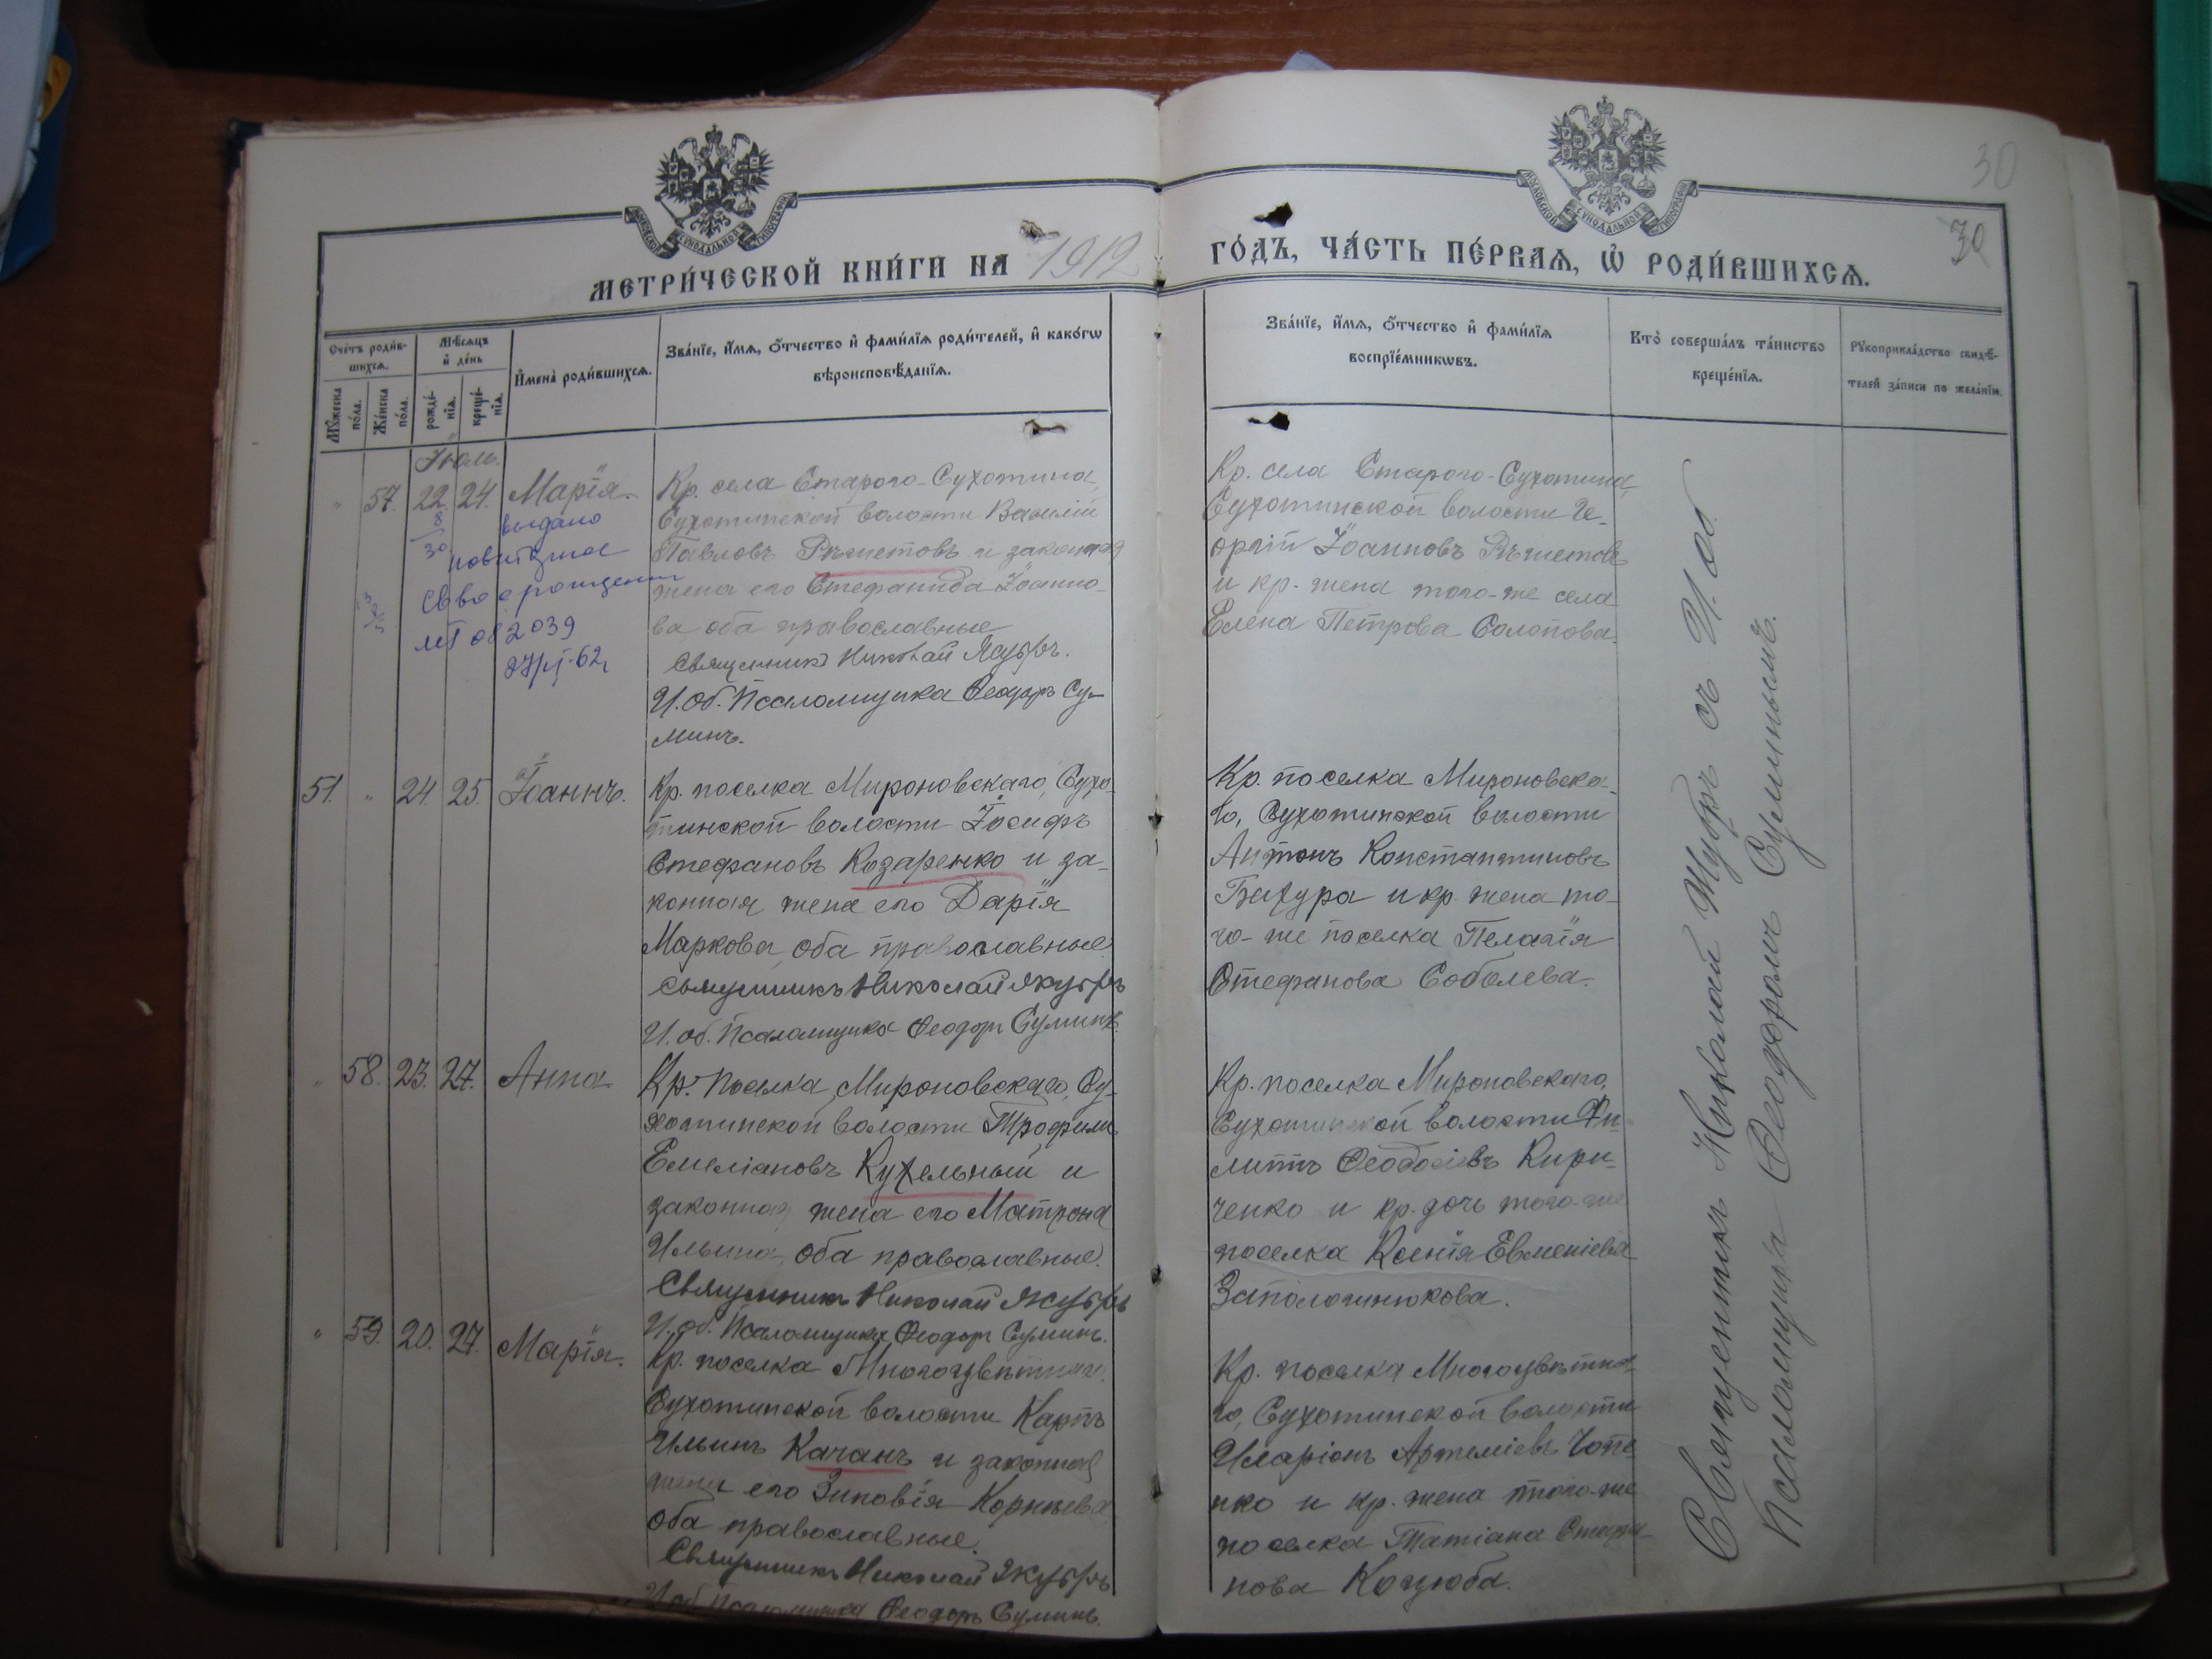 30
30
МОСКОВСКОЙ СѴНОДАЛЬНОЙ ТИПОГРАФІИ
МОСКОВСКОЙ СѴНОДАЛЬНОЙ ТИПОГРАФІИ
МЕТРИ́ЧЕСКОЙ КНИ́ГИ НА 1912 ГО́ДЪ, ЧА́СТЬ ПЕ́РВАѦ, Ѡ҆ РОДИ́ВШИХСѦ.
Сче́тъ роди́в-
шихсѧ.
Мꙋ́жеска по́ла.
Же́нска по́ла.
Мѣ́сѧцъ
и҆ де́нь
рожде́-
нїѧ.
креще́-
нїѧ.
И҆мена̀ роди́вшихсѧ.
Зва́нїе, и҆́мѧ, ѻ҆́тчество и҆ фами́лїѧ роди́телей, и҆ како́гѡ
вѣроисповѣ́данїѧ.
Зва́нїе, и҆́мѧ, ѻ҆́тчество и҆ фами́лїѧ
воспрїе́мникѡвъ.
Кто̀ соверша́лъ та́инство
креще́нїѧ.
Рꙋкоприкла́дство свидѣ́-
телей за́писи по жела́нїю.
Іюль.
" 57. 22. 24. Марія.
8
30
выдано
повторное
св во о рожден
082039
62 г
Кр. села Старого-Сухотина,
Сухотинской волости Василій
Павловъ Рѣшетовъ и законная
жена его Стефанида Іоанно-
ва оба православные
Священникъ Николай Якубръ.
И. об. Псаломщика Ѳеодоръ Су-
минъ.
Кр. села Старого-Сухотина,
Сухотинской волости Ге-
оргій Іоанновъ Рѣшетовъ
и кр. жена того-же села
Елена Петрова Солопова.
51. " 24. 25. Іоаннъ.
Кр. поселка Мироновскаго, Сухо-
тинской волости Іосифъ
Стефановъ Козаренко и за-
конная жена его Дарія
Маркова, оба православные.
Священникъ Николай Якубръ
И. об. Псаломщика Ѳеодоръ Суминъ.
Кр. поселка Мироновска-
го, Сухотинской волости
Антонъ Константиновъ
Бахура и кр. жена то-
го-же поселка Пелагія
Стефанова Соболева.
" 58. 23. 27. Анна.
Кр. поселка Мироновскаго, Су-
хотинской волости Трофимъ
Емеліановъ Кухельный и
законная жена его Матрона
Ильина, оба православные.
Священникъ Николай Якубръ
И. об. Псаломщика Ѳеодоръ Суминъ.
Кр. поселка Мироновскаго,
Сухотинской волости Фи-
липпъ Ѳеодосіевъ Кири-
ченко и кр. дочь того-же
поселка Ксенія Евменіева
" 59. 20. 27. Марія.
Кр. поселка Многоцвѣтнаго,
Сухотинской волости Карпъ
Ильинъ Качанъ и законная
жена его Зиновія Корнѣева
оба православные.
Священникъ Николай Якубръ
И. об. Псаломщика Ѳеодоръ Суминъ.
Кр. поселка Многоцвѣтна-
го, Сухотинской волости
Иларіонъ Артеміевъ Чопе-
нко и кр. жена того-же
поселка Татіана Стефа-
нова Коцюба.
Священникъ Николай Якубръ съ И. об.
Псаломщика Ѳеодоромъ Суминымъ.